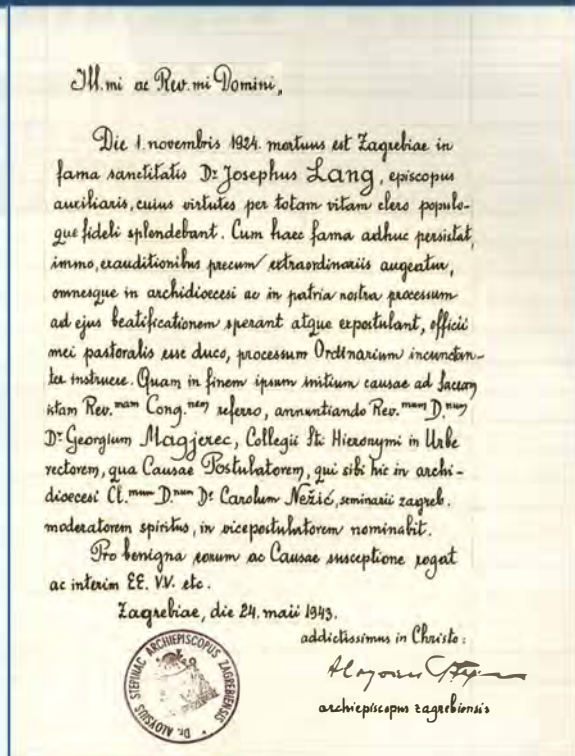 Ill.mi ac Rev.mi Domini,
Die 1. novembris 1924. mortuus est Zagrebiae in
fama sanctitatis Dr Josephus Lang, episcopus
auxiliaris, cuius virtutes per totam vitam clero populo-
que fideli splendebant. Cum haec fama adhuc persistat,
immo, exauditionibus precum extraordinariis augeatur,
omnesque in archidioecesi ac in patria nostra processum
ad ejus beatificationem sperant atque expostulant, officii
mei pastoralis esse duco, processum Ordinarium incunctan-
ter instruere. Quam in finem ipsum initium causae ad Sacram
istam Rev.mam Cong.nem refero, annuntiando Rev.mum D.num
Dr Georgium Magjerec, Collegii Sti Hieronymi in Urbe
rectorem, qua Causae Postulatorem, qui sibi hic in archi-
dioecesi Cl.mum D.num Dr Carolum Nežić, seminarii zagreb.
moderatorem spiritus, in vicepostulatorem nominabit.
Pro benigna eorum ac Causae susceptione rogat
ac interim EE. VV. etc.
Zagrebiae, die 24. maii 1943.
addictissimus in Christo:
archiepiscopus zagrebiensis
Dr. ALOYSIUS STEPINAC ARCHIEPISCOPUS ZAGREBIENSIS